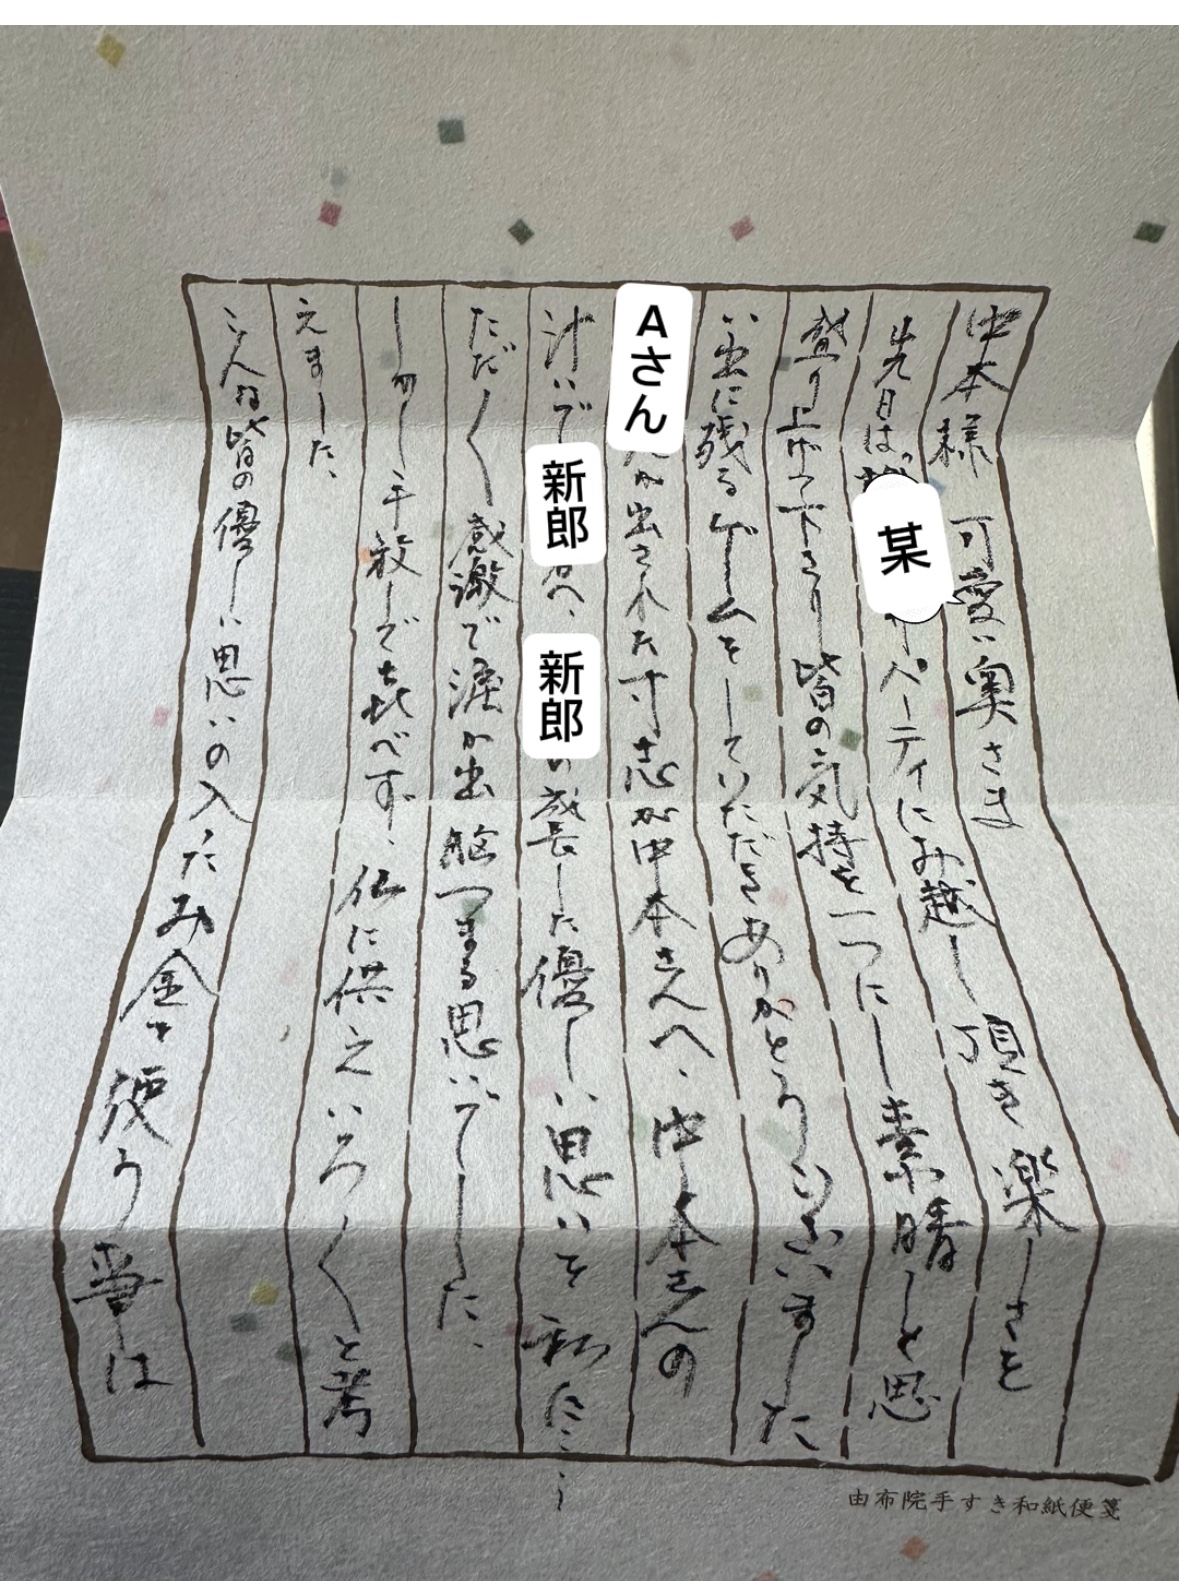 中本様 可愛い奥さま
先日は、某 パーティにお越し頂き楽しさを
盛り上げて下さり皆の気持を一つにし素晴しと思
い出に残るゲームをしていただきありがとうございました
Aさん が出された寸志が中本さんへ、中本さんの
計いで 新郎 君へ、 新郎 の成長した優しい思いを私に……
ただ〱感激で涙が出胸つまる思いでした、
しかし手放しで喜べず、仏に供えいろ〱と考
えました、
こんな皆の優しい思いの入ったお金を使う事は
由布院手すき和紙便箋